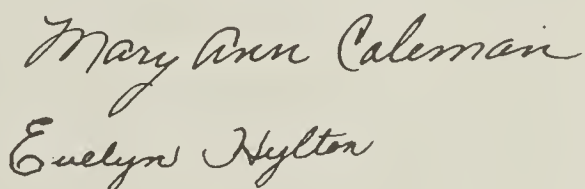 Mary Ann Coleman
Evelyn Hylton